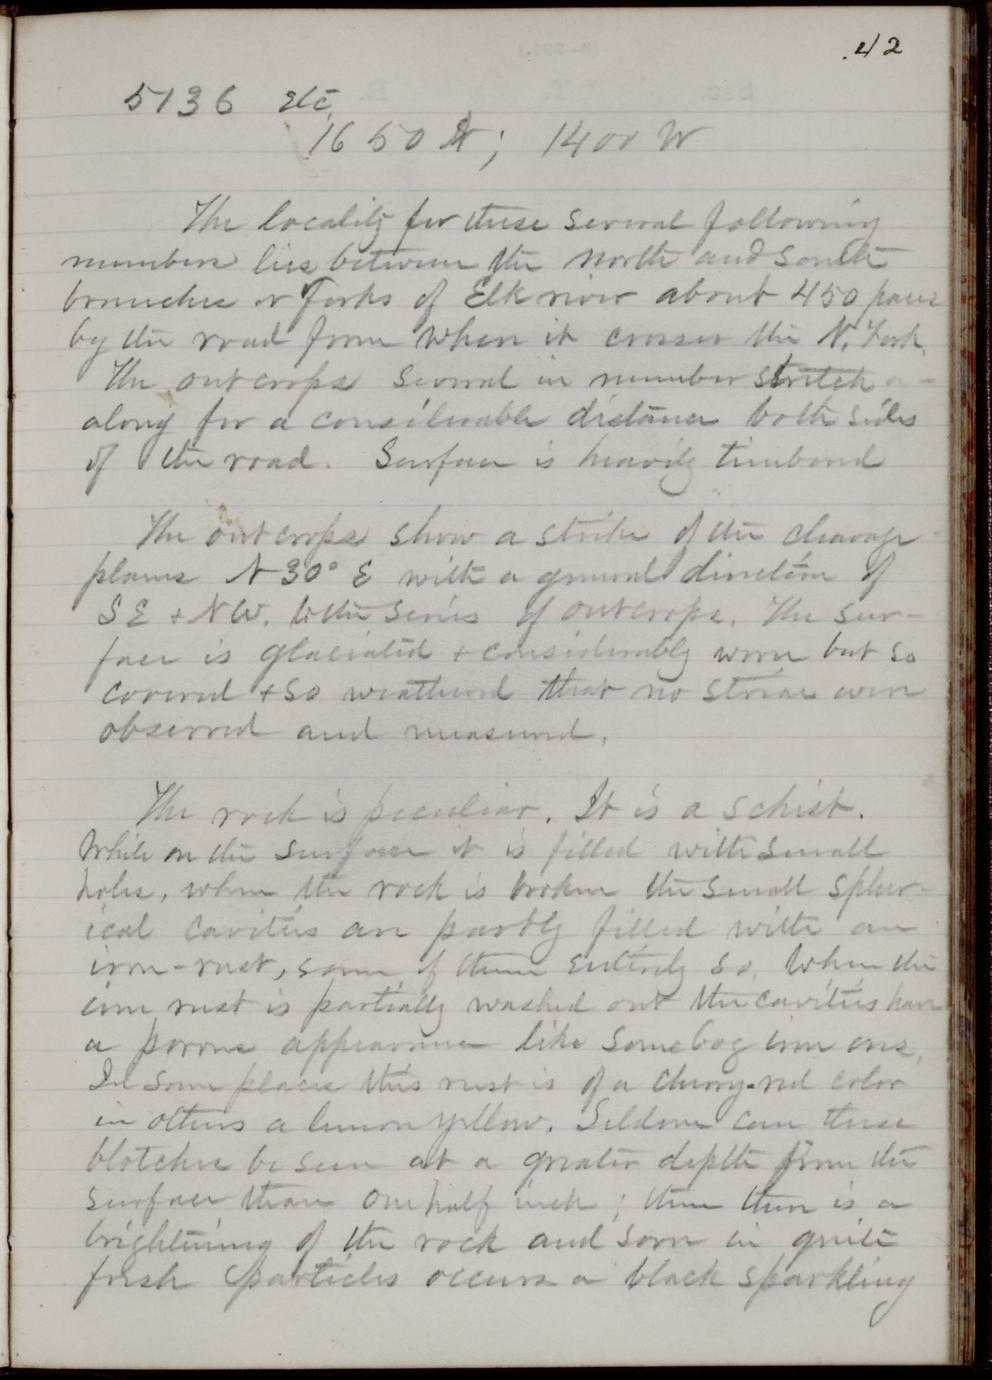 42
5136 etc.
1650 N; 1400 W
The locality for these several following
numbers lies between the north and south
branches or Forks of Elk river about 450 paces
by the road from where it crosses the N. Fork.
The outcrops several in number stretch
along for a considerable distance both sides
of the road. Surface is heavily timbered
The outcrops show a strike of the cleavage
planes N 30° E with a general direction of
SE + NW. to the series of outcrops. The sur-
face is glaciated + considerably worn but so
covered + so weathered that no striae were
observed and measured.
The rock is peculiar. It is a schist.
While on the surface it is filled with small
holes, when the rock is broken the small spher-
ical cavities are partly filled with an
iron-rust, some of them entirely so. When the
iron rust is partially washed out the cavities have
a porous appearance like some bog iron ores.
In some places this rust is of a cherry-red color
in others a lemon yellow. Seldom can these
blotches be seen at a greater depth from the
surface than one half inch; then there is a
brightening of the rock and soon in quite
fresh particles occurs a black sparkling